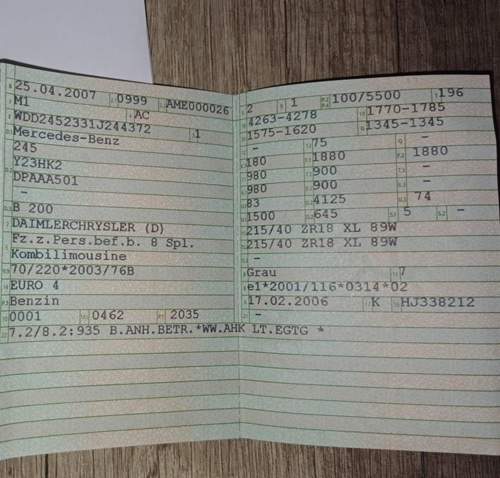 25.04.2007 0999 AME000026
M1 AC
WDD2452331J244372 1
Mercedes-Benz
245
Y23HK2
DPAAA501
-
B 200
DAIMLERCHRYSLER (D)
Fz.z.Pers.bef.b. 8 Spl.
Kombilimousine
70/220*2003/76B
EURO 4
Benzin
0001 0462 2035
7.2/8.2:935 B.ANH.BETR.*WW.AHK LT.EGTG *
2 1 100/5500 196
4263-4278 1770-1785
1575-1620 1345-1345
- 75 -
180 1880 1880
980 900 -
980 900 -
83 4125 74
1500 645 5 -
215/40 ZR18 XL 89W
215/40 ZR18 XL 89W
-
Grau 7
e1*2001/116*0314*02
17.02.2006 K HJ338212
-